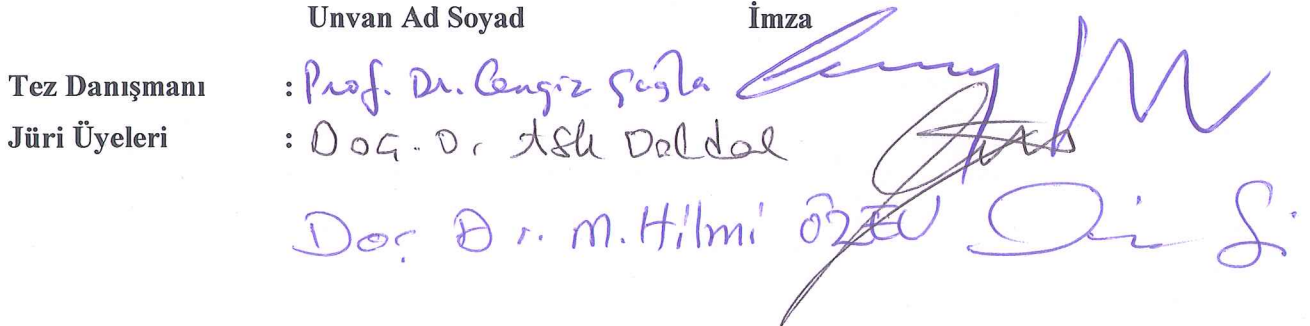 Unvan Ad Soyad İmza
Tez Danışmanı : Prof. Dr. Cengiz Çağla
Jüri Üyeleri : Doç. Dr Aslı Daldal
Doç Dr. M. Hilmi ÖZEV